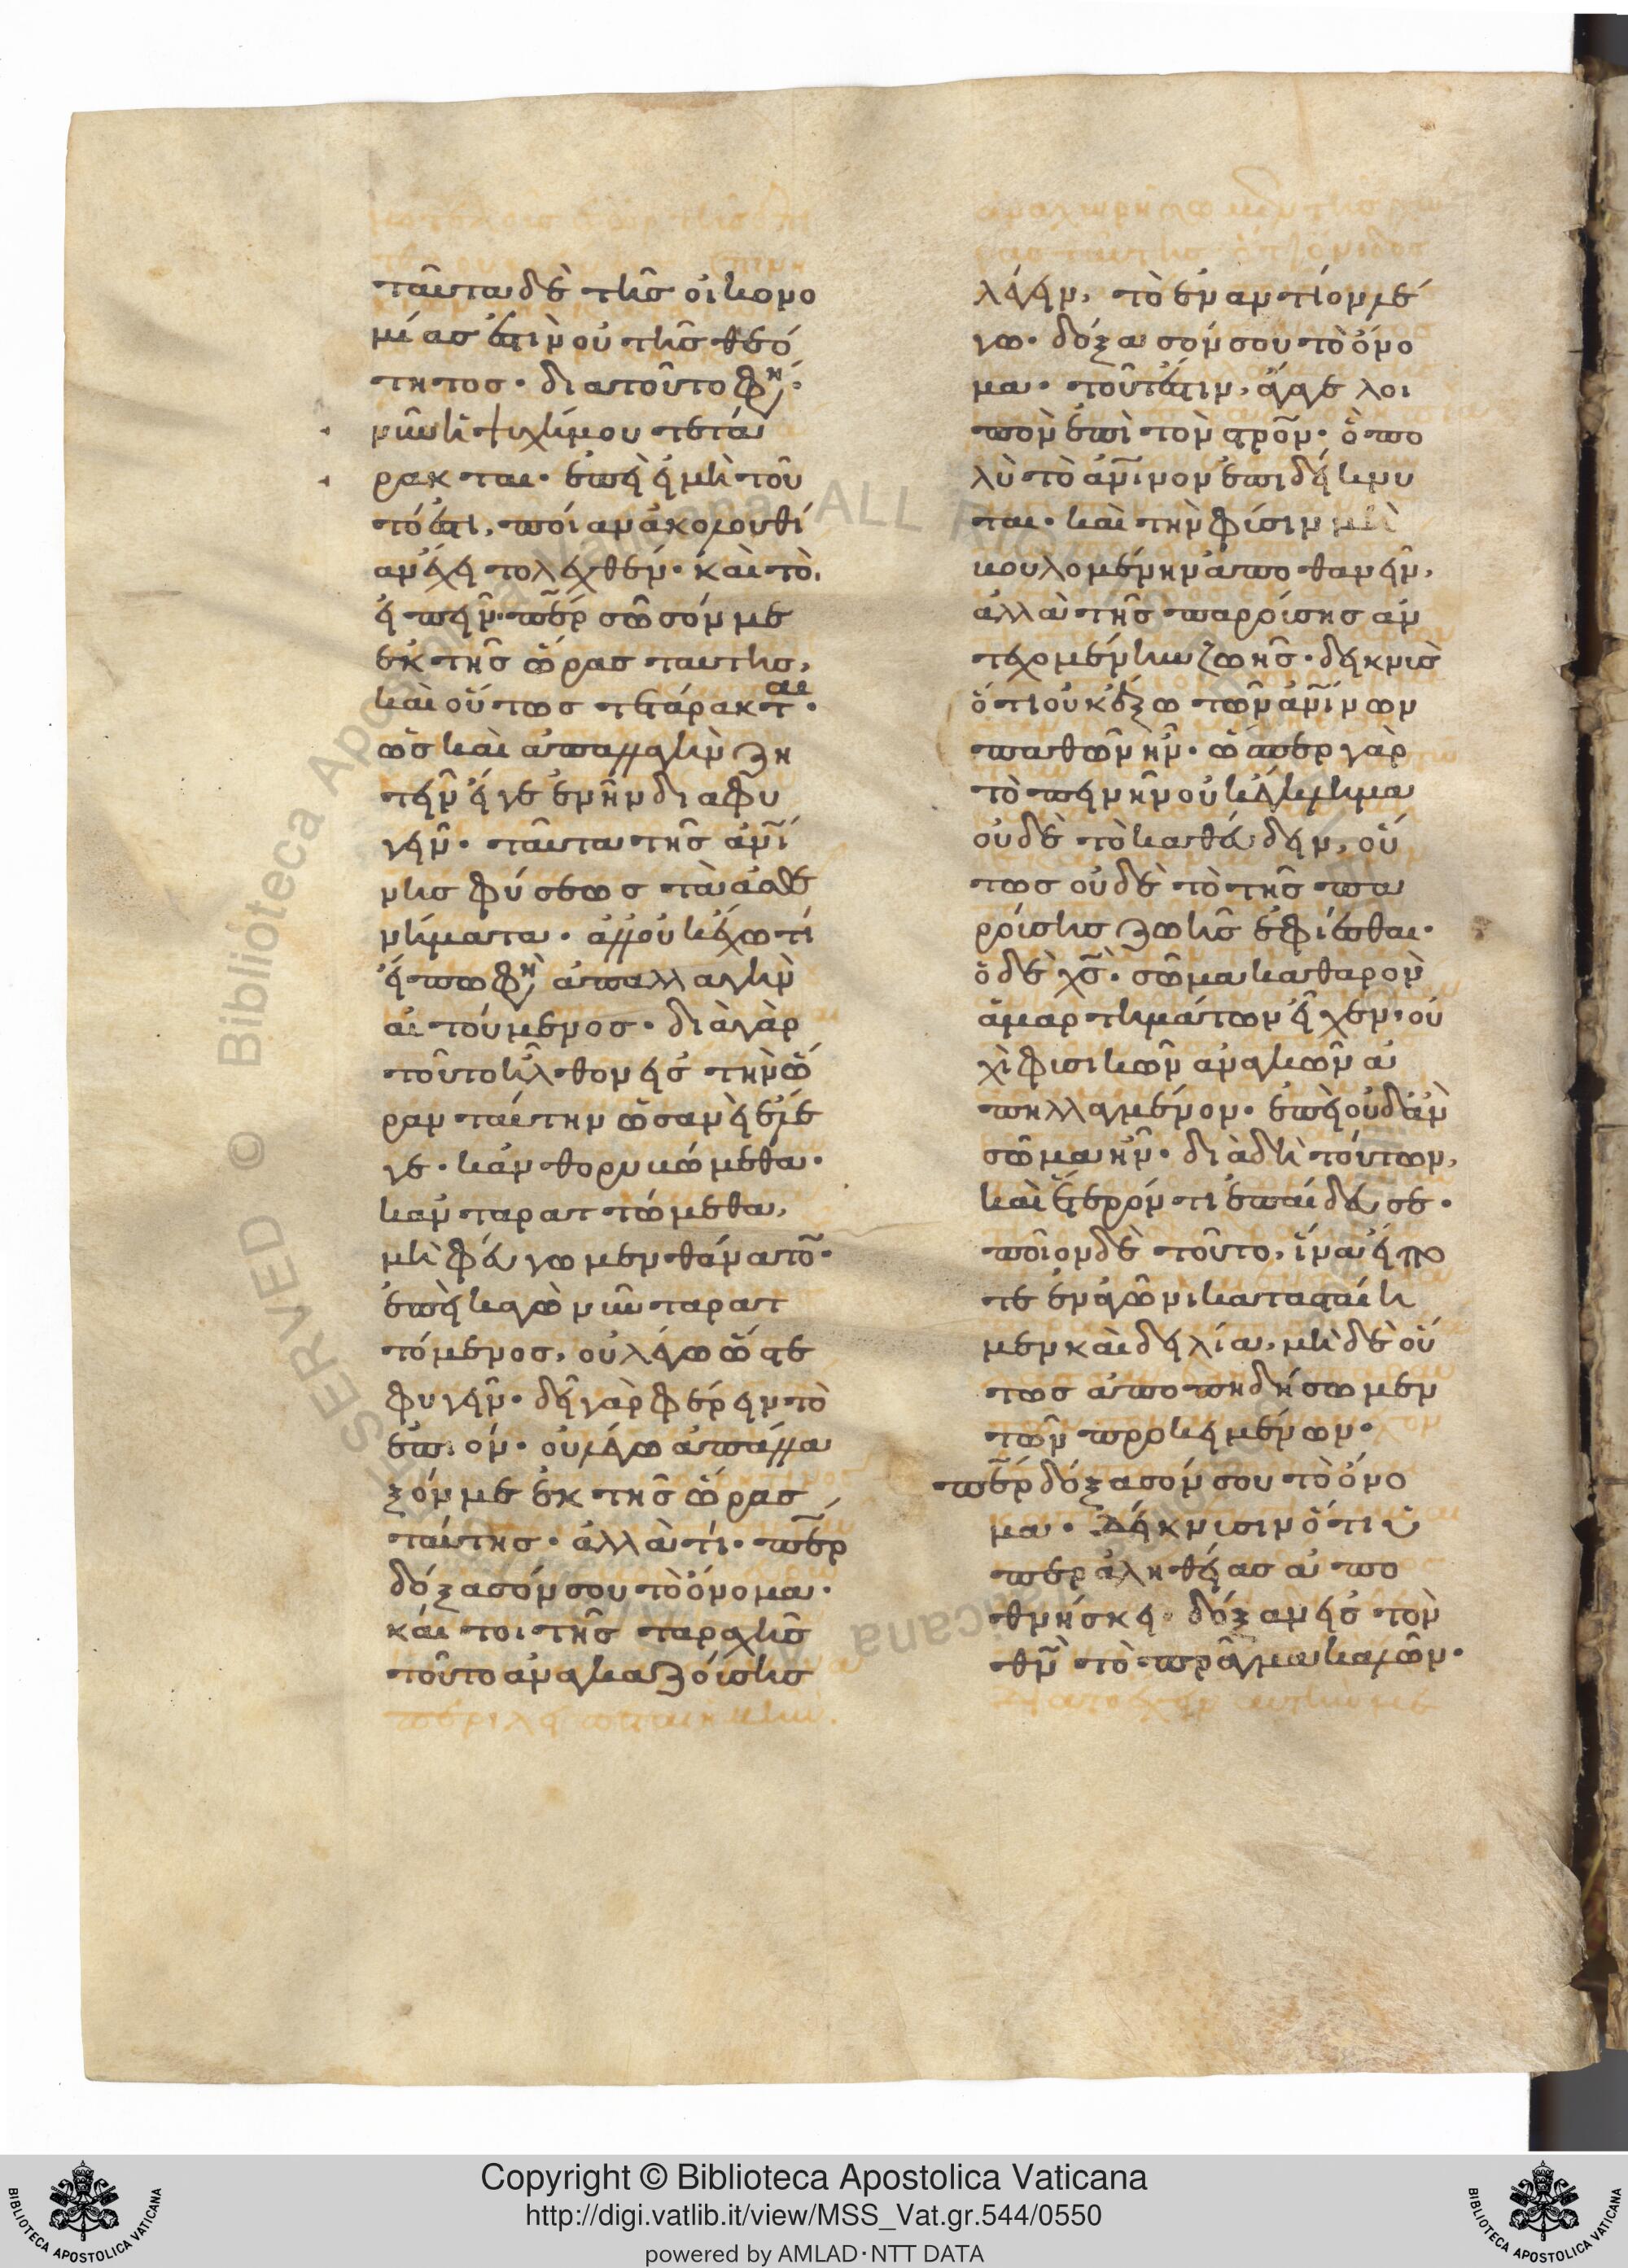 ταῦτα δὲ τῆς οἰκονο
μίας ἐστὶν οὐ τῆς θεό
τητος· διατοῦτο φη·
νῦν ἡ ψυχή μου τετά
ρακται· ἐπεὶ εἰ μὴ τοῦ
τό ἐστι, ποίαν ἀκολουθί
αν ἔχει τολεχθέν· καὶ τὸ,
εἰπεῖν· περ σῶσόν με
ἐκ τῆς ὥρας ταύτης,
καὶ οὕτως τετάρακται·
ὡς καὶ ἀπαλλαγὴν ζη
τεῖν εἴγε ἐνῆν διαφυ
γεῖν· ταῦτα τῆς ἀνί
νης φύσεως τὰ ἀσθε
νήματα· ἀλλ οὐκ ἔχω τί
εἴπω φη ἀπαλλαγὴν
αἰτούμενος· διὰ γὰρ
τοῦτο ἦλθον εἰς τὴν ὥ
ραν ταύτην ὡσανεὶ ἔλε
γε· κἀν θορυβώμεθα·
κἀν ταραττώμεθα,
μὴ φεύγωμεν θάνατον·
ἐπεὶ κἀγὼ νῦν ταρατ
τόμενος, οὐ λέγω ὥστε
φυγεῖν· δεῖ γὰρ φέρειν τὸ
ἐπιόν· οὐ λέγω ἀπάλλα
ξόν με ἐκ τῆς ὥρας
ταύτης· ἀλλὰ τί· περ
δόξασόν σου τὸ ὄνομα·
καίτοι τῆς ταραχῆς
τοῦτο ἀναγκαζούσης
λέγειν, τὸ ἐναντίον λέ
γω· δόξασόν σου τὸ ὄνο
μα· τοῦτέστιν, ἄγαγε λοι
πὸν ἐπὶ τὸν στρον· ὃ πο
λὺ τὸ ἀνινον ἐπιδείκνυ
ται· καὶ τὴν φύσιν μὴ
βουλομένην ἀποθανεῖν,
ἀλλὰ τῆς παρούσης ἀν
τεχομένην ζωῆς· δεικνὺς
ὅτι οὐκ ἔξω τῶν ἀνίνων
παθῶν ἦν· ὥσπερ γὰρ
τὸ πεινῆν οὐκ ἔγκλημα
οὐδὲ τὸ καθεύδειν, οὕ
τως οὐδὲ τὸ τῆς πα
ρούσης ζωῆς ἐφίεσθαι·
ὁ δὲ χς· σῶμα καθαρὸν
ἁμαρτημάτων εἶχεν· οὐ
χὶ φυσικῶν ἀναγκῶν ἀ
πηλλαγμένον· ἐπεὶ οὐδ ἀν
σῶμα ἦν· διὰ δὴ τούτων,
καὶ ἕτερόν τι ἐπαίδευσε·
ποῖον δὲ τοῦτο, ἵνα εἴ πο
τε ἐν ἀγῶνι κατασταίη
μεν καὶ δειλία, μὴ δὲ οὕ
τως ἀποπηδήσωμεν
τῶν προκειμένων·
περ δόξασόν σου τὸ ὄνο
μα· δείκνυσιν ὅτι ὑ
περ ἀληθείας ἀπο
θνήσκει· δόξαν εἰς τὸν
θν τὸ πρᾶγμα καλῶν·
Biblioteca Apostolica Vaticana ALL RIGHTS RESERVED ©
Copyright © Biblioteca Apostolica Vaticana
http://digi.vatlib.it/view/MSS_Vat.gr.544/0550
powered by AMLAD·NTT DATA
BIBLIOTECA APOSTOLICA VATICANA
BIBLIOTECA APOSTOLICA VATICANA